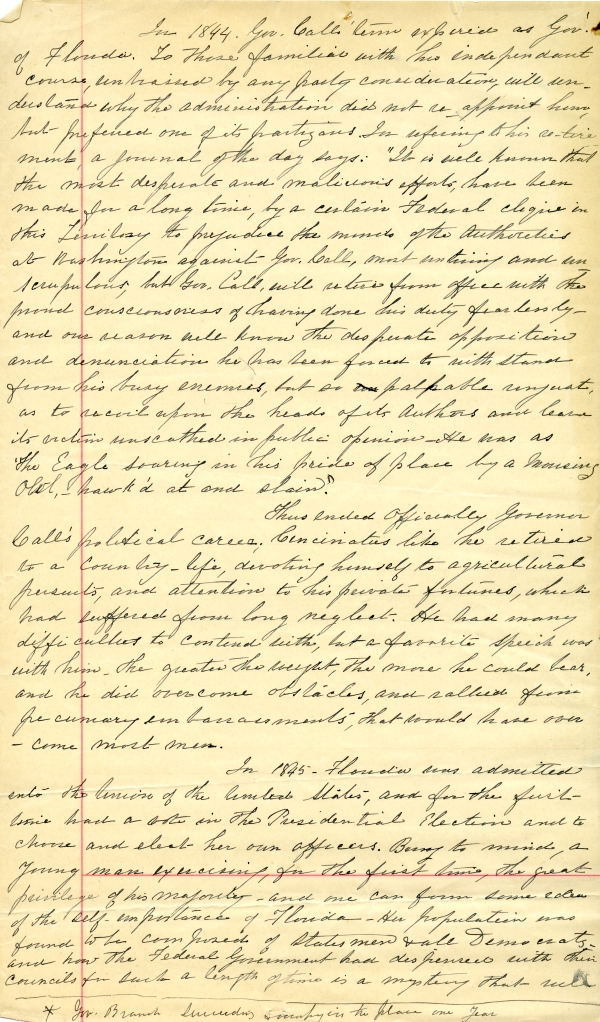 In 1844. Gov. Call's term expired as Gov'.
of Florida. To those familiar with his independant
course, unbiased by any party consideration, will un-
derstand why the administration did not re-appoint him,
but preferred one of its partizans. In refering to his retire
ment, a journal of the day says: "It is well known that
the most desperate and malicious efforts, have been
made for a long time, by a certain Federal clique in
this Territory to prejudice the minds of the Authorities
at Washington against Gov. Call, most untiring and un
scrupulous, but Gov. Call, will retire from office with the
proud consciousness of having done his duty fearlessly-
and our reason well know the desperate opposition
and denunciation he has been forced to withstand
from his busy enemies, but so palpable unjust,
as to recoil upon the heads of its authors and leave
its victim unscathed in public opinion - He was as
"The Eagle soaring in his pride of place by a Mousing
Owl, - hawk'd at and slain."
Thus ended Officially Governor
Call's political career; Cincinatus like he retired
to a Country-life, devoting himself to agricultural
persuits, and attention to his private fortunes, which
had suffered from long neglect. He had many
difficulties to contend with, but a favorite speech was
with him - the greater the weight, the more he could bear,
and he did overcome obstacles, and rallied from
pecuniary embarrassments, that would have over
- come most men.
In 1845 - Florida was admitted
into the Union of the United States, and for the first
time had a vote in the Presidential Election and to
choose and elect her own officers. Bring to mind, a
Young man exercising, for the first time, the great
privilege of his majority - and one can form some idea
of the self importance of Florida - Her population was
found to be composed of Statesmen & all Democrats-
and how the Federal Government had dispensed with their
councils for such a length of time is a mystery that will
* Gov. Branch succeeding in the place one Year